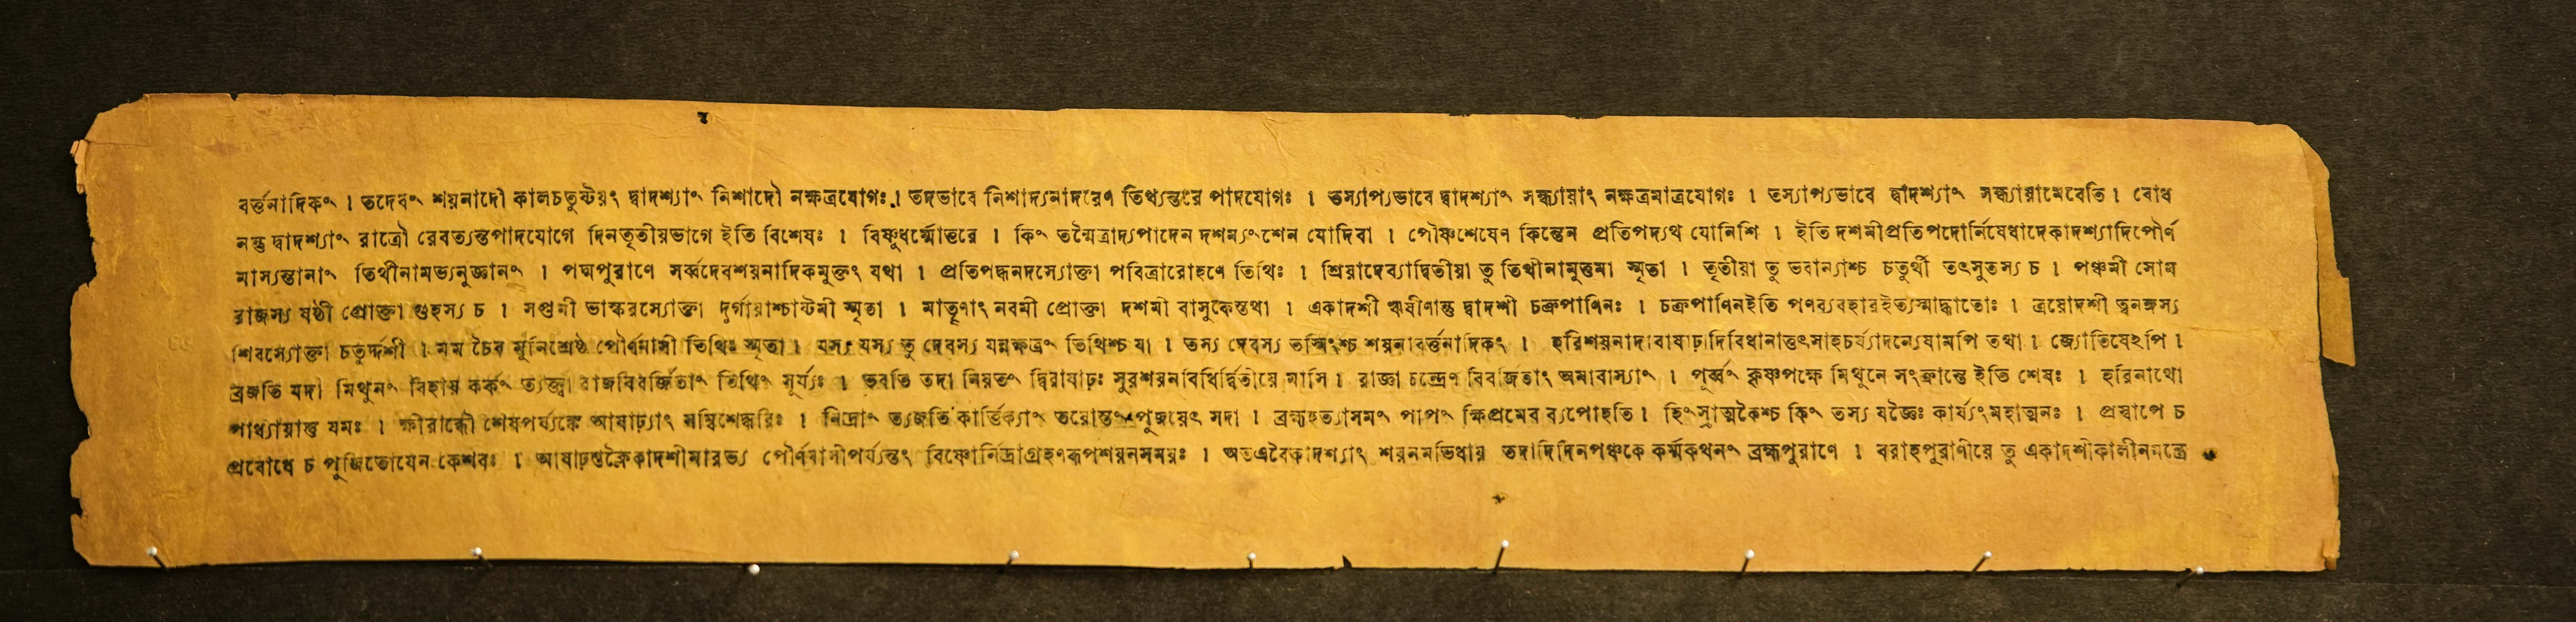 বর্ত্তনাদিকং । তদেবং শয়নাদৌ কালচতুষ্টয়ং দ্বাদশ্যাং নিশাদৌ নক্ষত্রযোগঃ । তদভাবে নিশাদ্যনাদরেণ তিথ্যন্তরে পাদযোগঃ । তস্যাপ্যভাবে দ্বাদশ্যাং সন্ধ্যায়াং নক্ষত্রমাত্রযোগঃ । তস্যাপ্যভাবে দ্বাদশ্যাং সন্ধ্যায়ামেবেতি । বোধ
নন্তু দ্বাদশ্যাং রাত্রৌ রেবত্যন্তপাদযোগে দিনতৃতীয়ভাগে ইতি বিশেষঃ । বিষ্ণুধর্ম্মোত্তরে । কিং তন্মৈত্রাদ্যপাদেন দশম্যংশেন যোদিবা । পৌষ্ণশেষেণ কিন্তেন প্রতিপদ্যথ যোনিশি । ইতি দশমীপ্রতিপদোর্নিষেধাদেকাদশ্যাদিপৌর্ণ
মাস্যন্তানাং তিথীনামভ্যনুজ্ঞানং । পদ্মপুরাণে সর্ব্বদেবশয়নাদিকমুক্তং যথা । প্রতিপদ্ধনদস্যোক্তা পবিত্রারোহণে তিথিঃ । শ্রিয়াদেব্যাদ্বিতীয়া তু তিথীনামুত্তমা স্মৃতা । তৃতীয়া তু ভবান্যাশ্চ চতুর্থী তৎসুতস্য চ । পঞ্চমী সোম
রাজস্য ষষ্ঠী প্রোক্তা গুহস্য চ । সপ্তমী ভাস্করস্যোক্তা দুর্গায়াশ্চাষ্টমী স্মৃতা । মাতৃণাং নবমী প্রোক্তা দশমী বাসুকেস্তথা । একাদশী ঋষীণান্তু দ্বাদশী চক্রপাণিনঃ । চক্রপাণিনইতি পণব্যবহারইত্যস্মাদ্ধাতোঃ । ত্রয়োদশী ত্বনঙ্গস্য
শিবস্যোক্তা চতুর্দ্দশী । মম চৈব মুনিশ্রেষ্ঠ পৌর্ণমাসী তিথিঃ স্মৃতা । যস্য যস্য তু দেবস্য যন্নক্ষত্রং তিথিশ্চ যা । তস্য দেবস্য তস্মিংশ্চ শয়নাবর্ত্তনাদিকং । হরিশয়নাদাবাষাঢ়াদিবিধানাত্তৎসাহচর্য্যাদন্যেষামপি তথা । জ্যোতিষেঽপি ।
ব্রজতি যদা মিথুনং বিহায় কর্কং ত্যক্ত্বা রাজবিবর্জ্জিতাং তিথিং সূর্য্যঃ । ভবতি তদা নিয়তং দ্বিরাষাঢ়ঃ সুরশয়নবিধির্দ্বিতীয়ে মাসি । রাজ্ঞা চন্দ্রেণ বিবর্জিতাং অমাবাস্যাং । পূর্ব্বং কৃষ্ণপক্ষে মিথুনে সংক্রান্তে ইতি শেষঃ । হরিনাথো
পাধ্যায়ান্তু যমঃ । ক্ষীরাব্ধৌ শেষপর্য্যঙ্কে আষাঢ়্যাং সম্বিশেদ্ধরিঃ । নিদ্রাং ত্যজতি কার্ত্তিক্যাং তয়োস্তং পূজয়েৎ সদা । ব্রহ্মহত্যাসমং পাপং ক্ষিপ্রমেব ব্যপোহতি । হিংস্রাত্মকৈশ্চ কিং তস্য যজ্ঞৈঃ কার্য্যংমহাত্মনঃ । প্রস্বাপে চ
প্রবোধে চ পূজিতোযেন কেশবঃ । আষাঢ়শুক্লৈকাদশীমারভ্য পৌর্ণমাসীপর্য্যন্তং বিষ্ণোর্নিদ্রাগ্রহণরূপশয়নসময়ঃ । অতএবৈকাদশ্যাং শয়নমভিধায় তদাদিদিনপঞ্চকে কর্ম্মকথনং ব্রহ্মপুরাণে । বরাহপুরাণীয়ে তু একাদশীকালীনমন্ত্রে